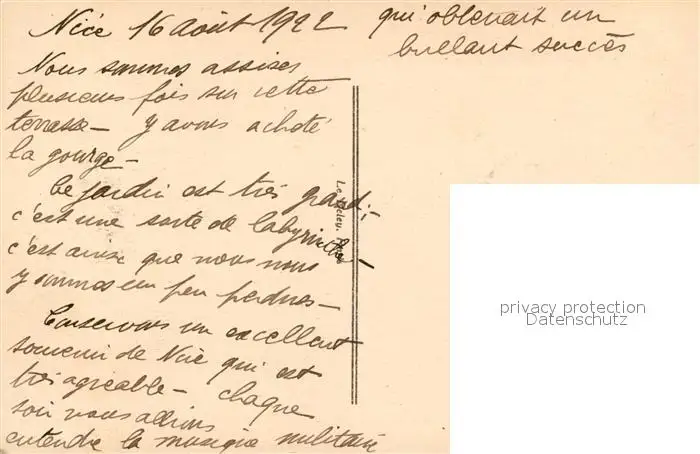 Nice 16 août 1922
Nous sommes assises
plusieurs fois sur cette
terrasse – y avons acheté
la gourge –
Le jardin est très grand ; –
c'est une sorte de labyrinthe –
c'est ainsi que nous nous
y sommes un peu perdues –
Conservons un excellent
souvenir de Nice qui est
très agréable – chaque
soir nous allions
entendre la musique militaire
qui obtenait un
brillant succès
privacy protection
Datenschutz